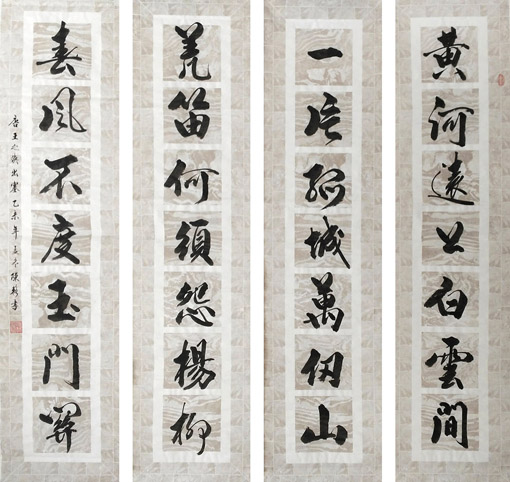 黄河遠上白雲間
一片孤城萬仞山
羌笛何須怨楊柳
春風不度玉門關
唐王之渙出塞乙未年